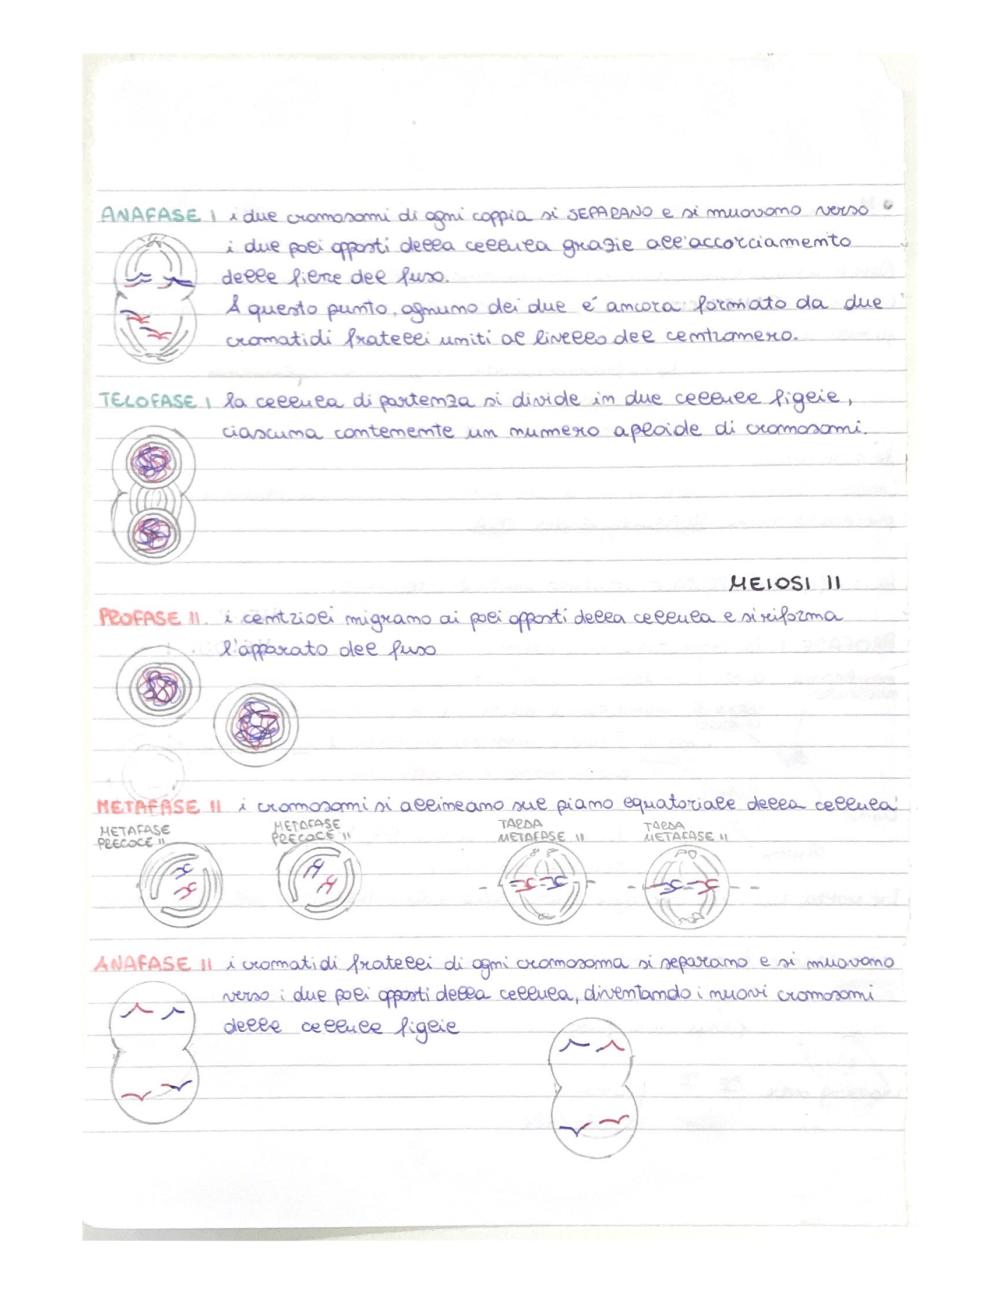 ANAFASE I i due cromosomi di ogni coppia si SEPARANO e si muovono verso
i due poli opposti della cellula grazie all'accorciamento
delle fibre del fuso.
A questo punto, ognuno dei due é ancora formato da due
cromatidi fratelli uniti al livello del centromero.
TELOFASE I la cellula di partenza si divide in due cellule figlie,
ciascuna contenente un numero aploide di cromosomi.
MEIOSI II
PROFASE II. i centrioli migrano ai poli opposti della cellula e si riforma
l'apparato del fuso
METAFASE II i cromosomi si allineano sul piano equatoriale della cellula
METAFASE PRECOCE II
METAFASE PRECOCE II
TARDA METAFASE II
TARDA METAFASE II
ANAFASE II i cromatidi fratelli di ogni cromosoma si separano e si muovono
verso i due poli opposti della cellula, diventando i nuovi cromosomi
delle cellule figlie